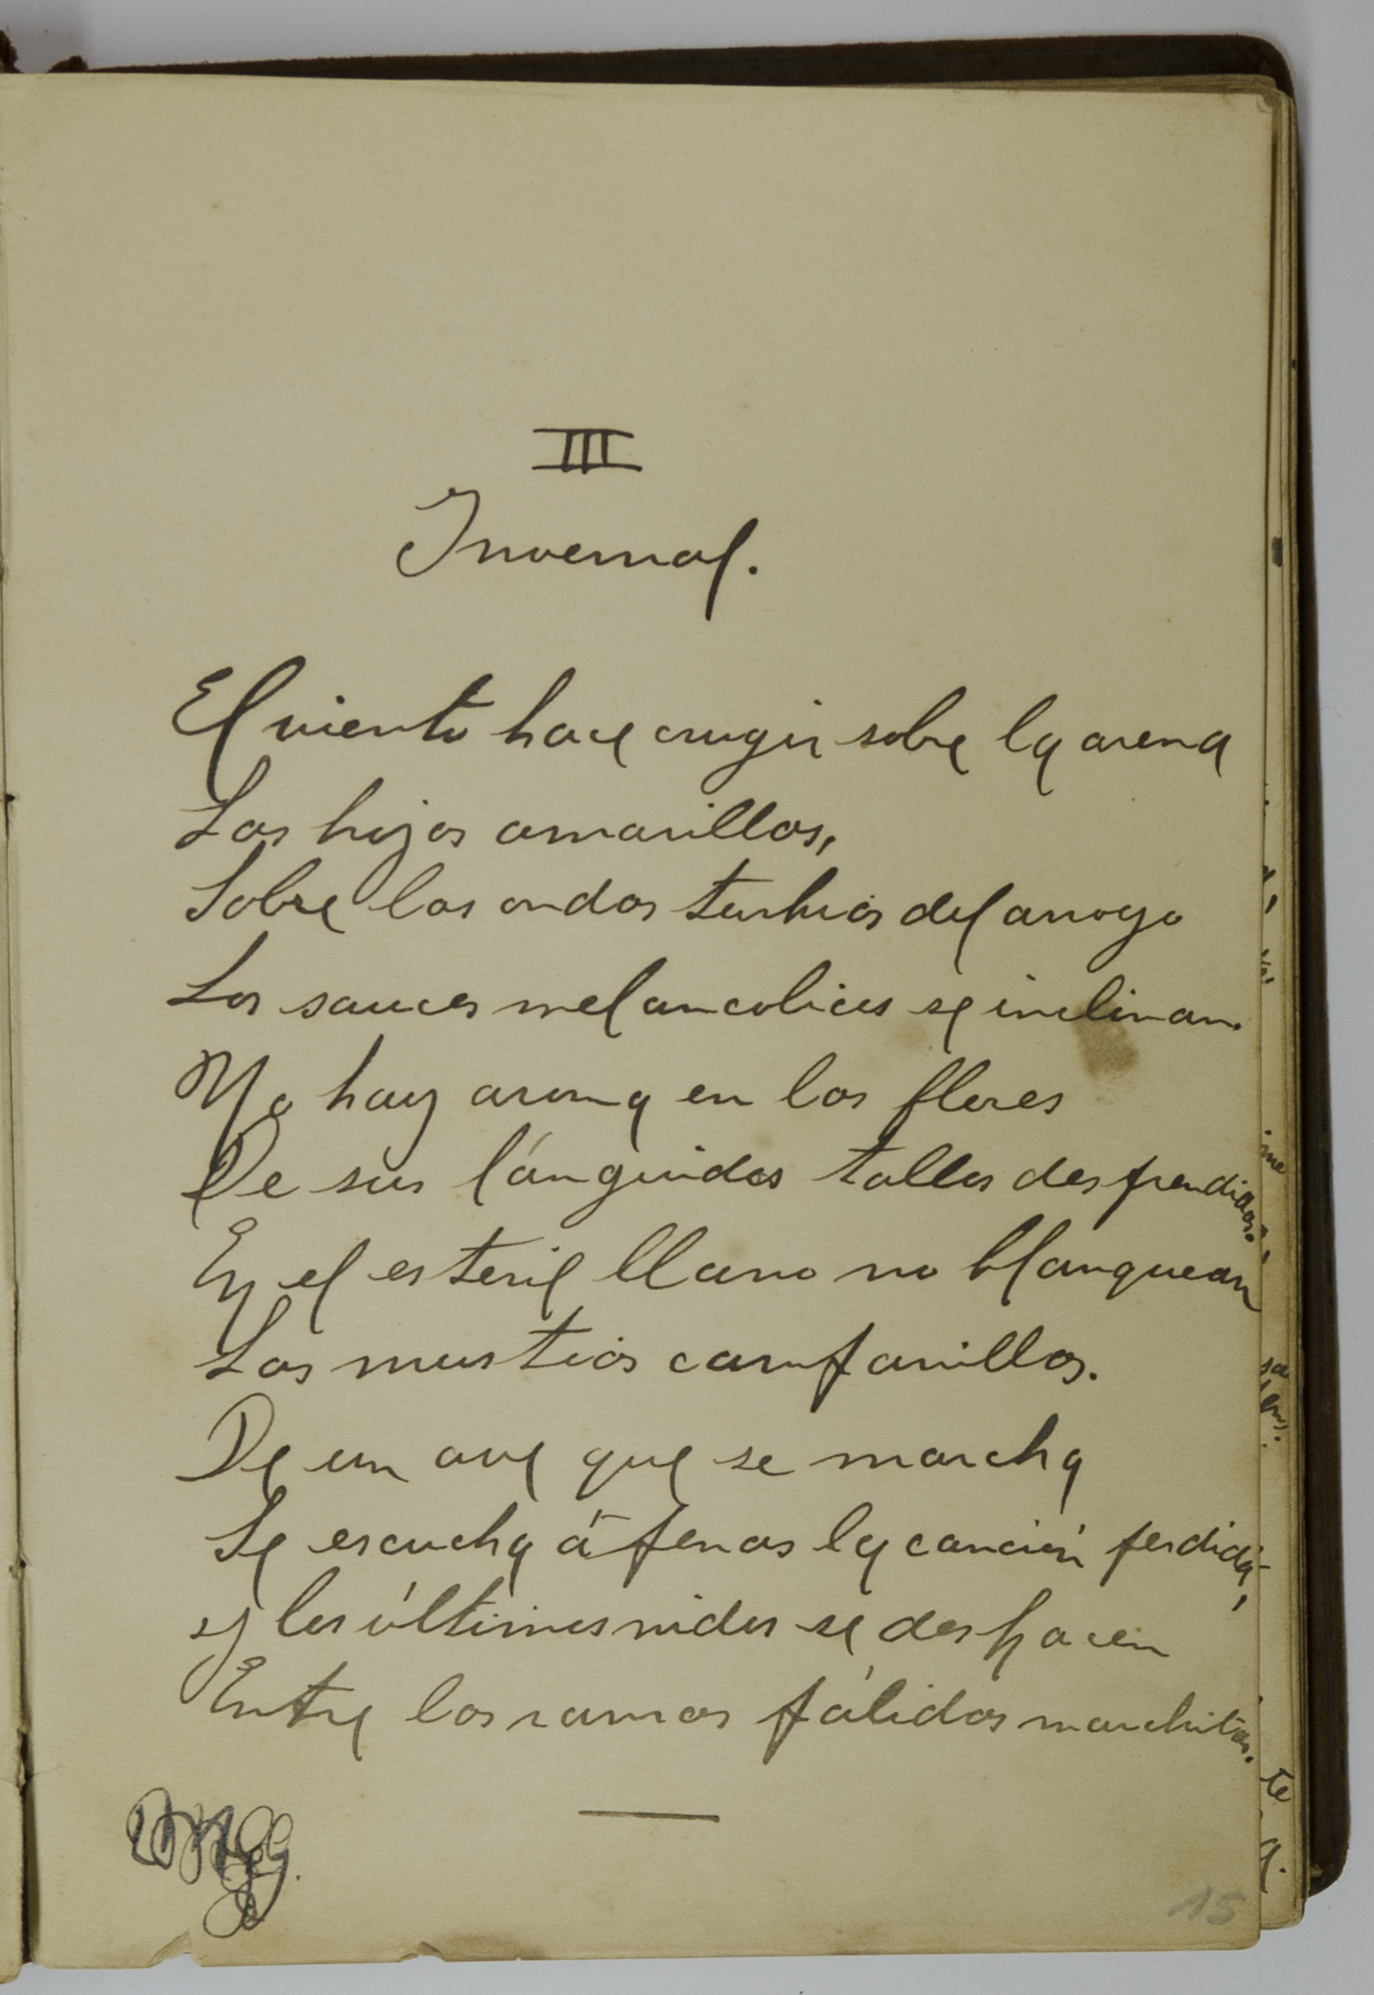 III
Invernal.
El viento hace crugir sobre la arena
Las hojas amarillas,
Sobre las ondas turbias del arroyo
Los sauces melancolicos se inclinan.
No hay aroma en las flores
De sus lánguidos tallos desprendidas.
En el esteril llano no blanquean
Las mustias campanillas.
De un ave que se marcha
Se escucha á penas la canción perdida,
y los últimos nidos se deshacen
Entre las ramas pálidas marchitas.
15